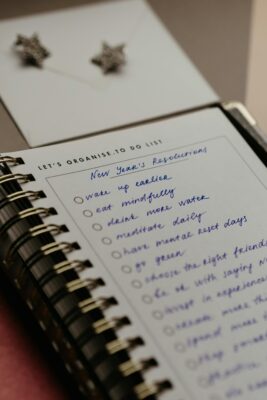 LET'S ORGANISE, TO DO LIST
New Year's Resolutions
wake up earlier
eat mindfully
drink more water
meditate daily
have mental reset days
go green
choose the right friend
be ok with saying
invest in experience
create more
spend more